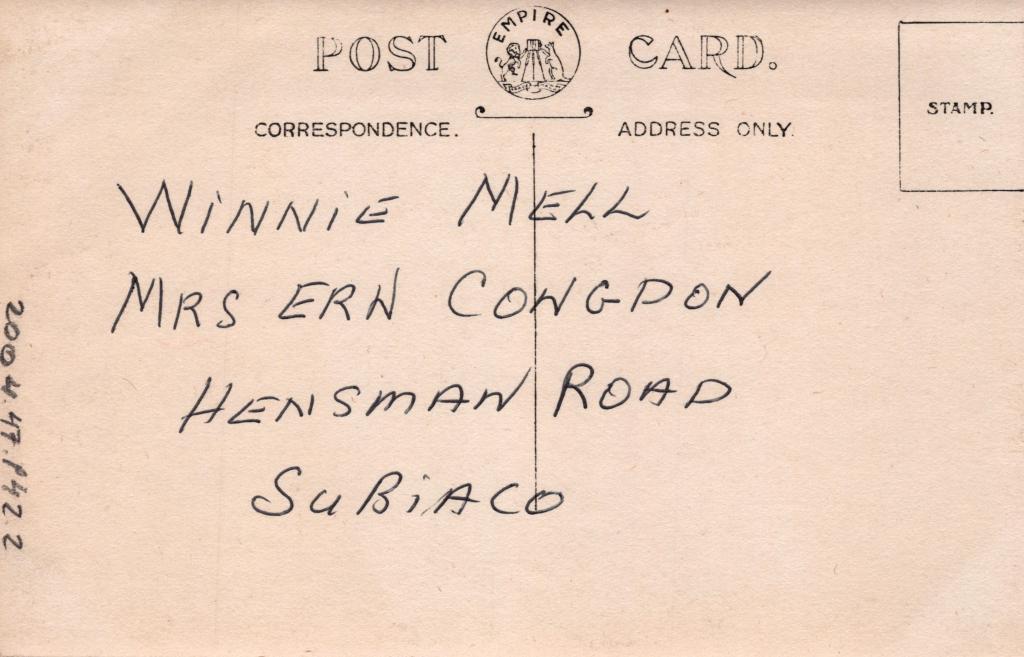 POST EMPIRE CARD.
CORRESPONDENCE. ADDRESS ONLY.
STAMP.
WiNNiE MELL
MRS ERN CONGDON
HENSMAN ROAD
SUBiACO
2004.47.P42.2